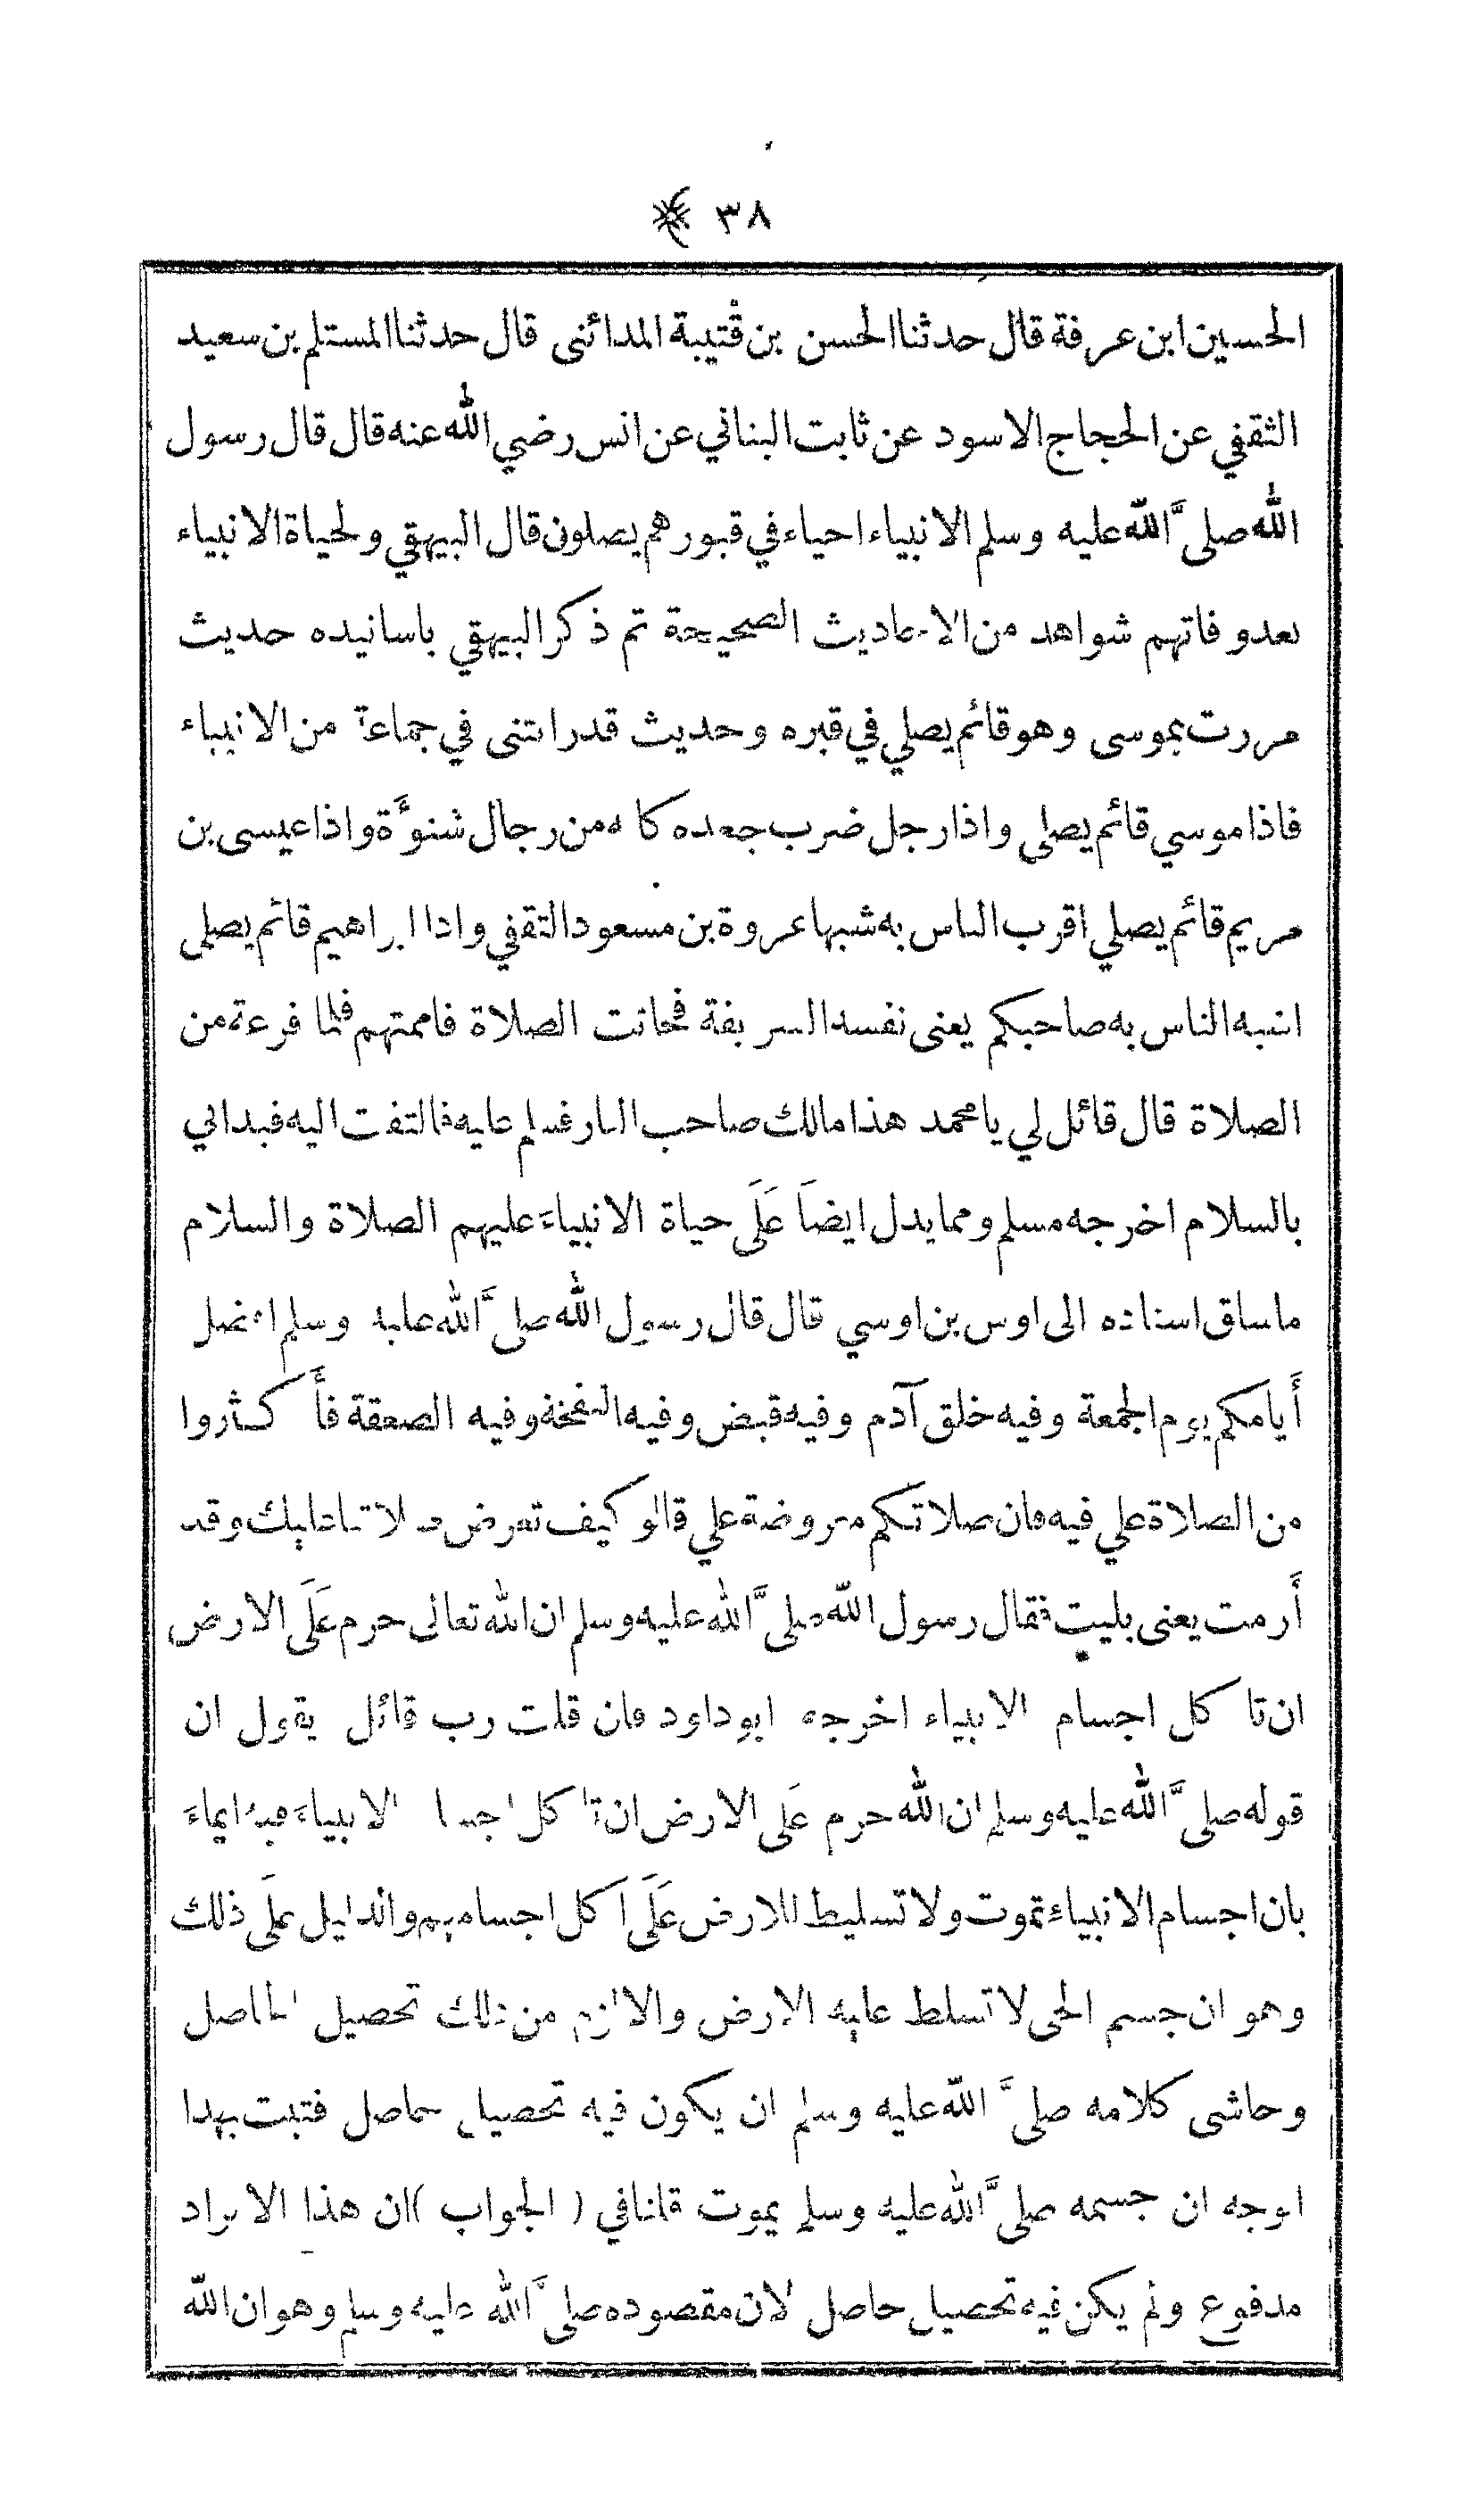 ٣٨
الحسين ابن عرفة قال حدثنا الحسن بن قتيبة المدائنى قال حدثنا المستلم بن سعيد
الثقفي عن الحجاج الاسود عن ثابت البناني عن انس رضي الله عنه قال قال رسول
الله صلى الله عليه وسلم الانبياء احياء في قبورهم يصلون قال البيهقي ولحياة الانبياء
بعد وفاتهم شواهد من الاحاديث الصحيحة ثم ذكر البيهقي باسانيده حديث
مررت بموسى وهو قائم يصلي في قبره وحديث قد رايتنى في جماعة من الانبياء
فاذا موسي قائم يصلي واذا رجل ضرب جعد كانه من رجال شنوءة واذا عيسى بن
مريم قائم يصلي اقرب الناس به شبها عروة بن مسعود الثقفي واذا ابراهيم قائم يصلى
اشبه الناس به صاحبكم يعنى نفسه الشريفة فحانت الصلاة فاممتهم فلما فرغت من
الصلاة قال قائل لي يا محمد هذا مالك صاحب النار فسلم عليه فالتفت اليه فبداني
بالسلام اخرجه مسلم ومما يدل ايضاَ عَلَى حياة الانبياءَ عليهم الصلاة والسلام
ما ساق اسناده الى اوس بن اوسي قال قال رسول الله صلى الله عليه وسلم افضل
أيامكم يوم الجمعة وفيه خلق آدم وفيه قبض وفيه النفخة وفيه الصعقة فأكثروا
من الصلاة علي فيه فان صلاتكم معروضة علي قالو كيف تعرض صلاتنا عليك وقد
أرمت يعنى بليت فقال رسول الله صلى الله عليه وسلم ان الله تعالى حرم عَلَى الارض
ان تاكل اجسام الانبياء اخرجه ابو داود فان قلت رب قائل يقول ان
قوله صلى الله عليه وسلم ان الله حرم عَلى الارض ان تاكل اجسا الانبياءَ فيه ايماءَ
بان اجسام الانبياء تموت ولا تسليط للارض عَلَى اكل اجسامهم والدليل عَلَى ذلك
وهو ان جسم الحى لا تسلط عليه الارض والا لزم من ذلك تحصيل الحاصل
وحاشى كلامه صلى الله عليه وسلم ان يكون فيه تحصيل حاصل فثبت بهذا
الوجه ان جسمه صلى الله عليه وسلم يموت قلنا في (الجواب) ان هذا الايراد
مدفوع ولم يكن فيه تحصيل حاصل لان مقصوده صلى الله عليه وسلم وهو ان الله